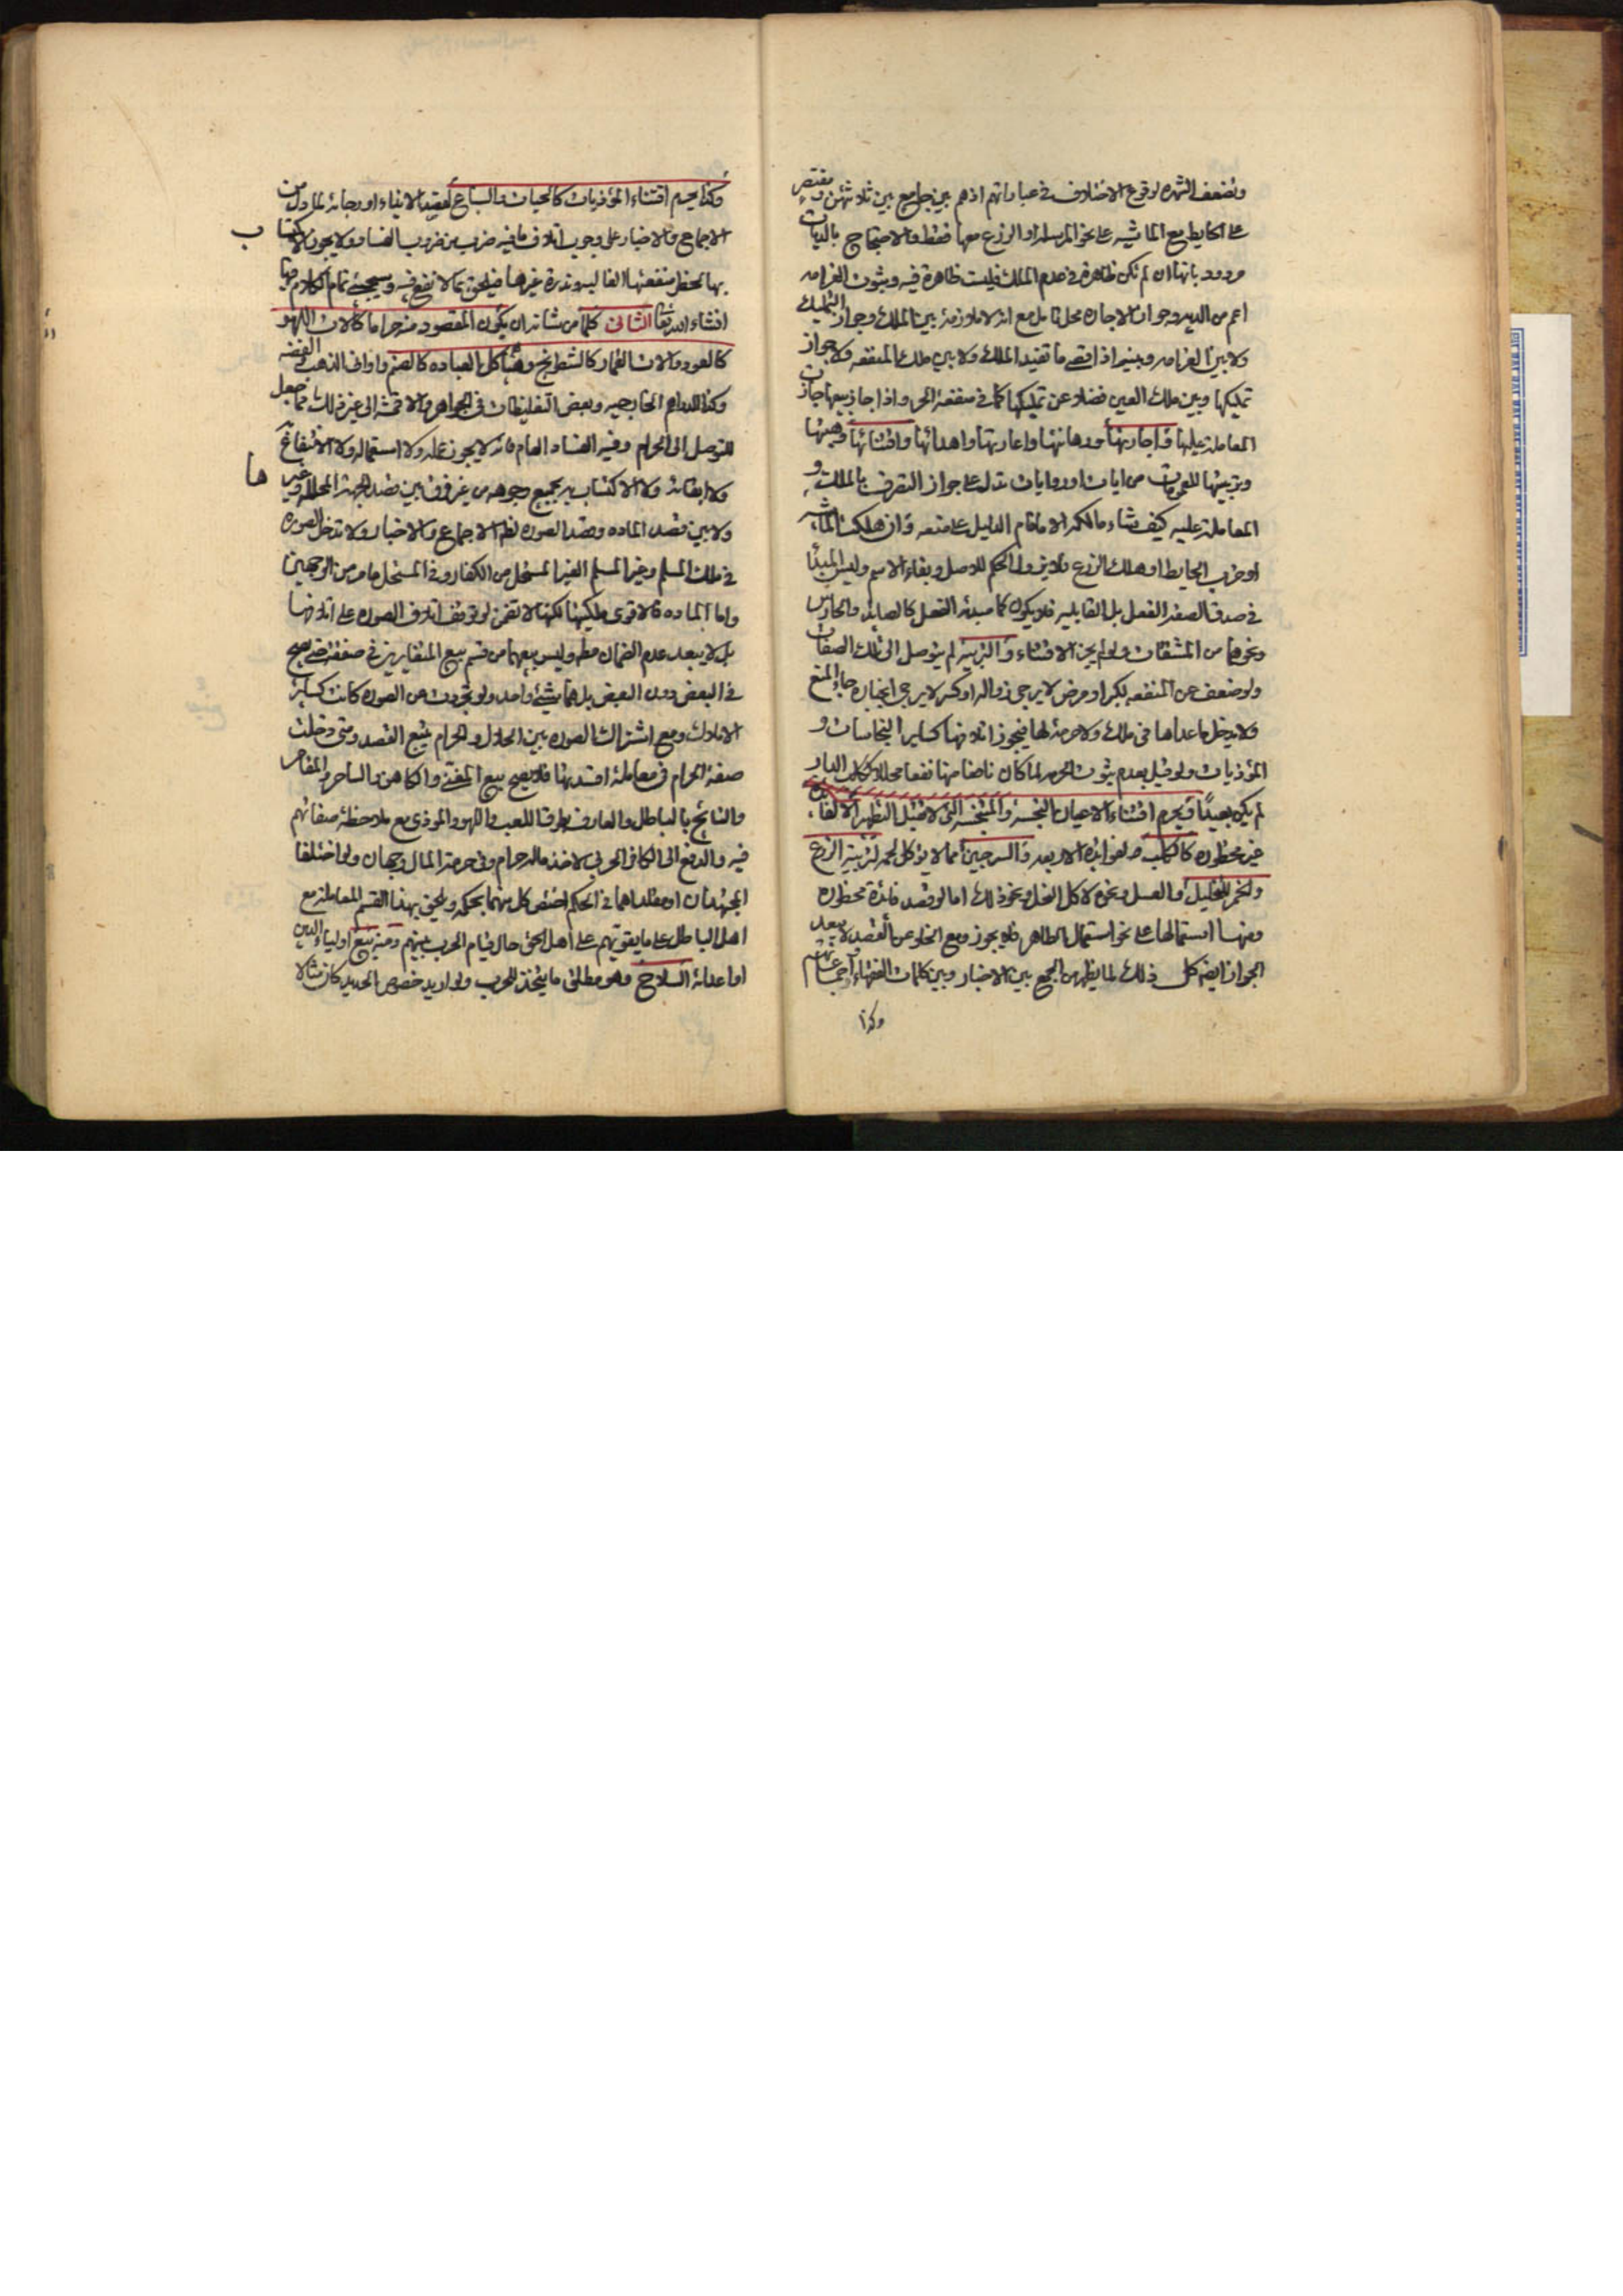 وتضعف الشهره لوقوع الاختلاف في عباراتهم اذ هم بين جامع بين ثلاثتهن ومقتصر
على الحايط مع الماشيه على نحو المرسل او الزرع معها فقط والاحتجاج بالديات
مردود بانها ان لم تكن ظاهرة في عدم الملك فليست ظاهرة فيه وثبوت الغرامه
اعم من الديه وجواز الاجاره محل تامل مع انه لا ملازمة بين الملك وجواز التمليك
ولا بين الغرامه وبينه اذ اقصى ما تفيد الملك ولا بين ملك المنفعه ولا جواز
تمليكها وبين ملك العين فضلا عن تمليكها كما في منفعة الحر واذا جاز بيعها جازت
المعامله عليها واجارتها ورهانتها واعارتها واهدائها واقتنائها وهبتها
وتربيتها للعمومات من ايات او روايات تدل على جواز التصرف بالملك و
المعاملة عليه كيف شاء مالكه الا ما قام الدليل على منعه وان هلكت الماشيه
او خرب الحايط او هلك الزرع فلا يزول الحكم للاصل وبقاء الاسم وليس المبدأ
في صدق الصفه الفعل بل القابليه فلا يكون كما مبدئه الفعل كالصايد والحارس
ونحوهما من المشتقات ولو لم يجز الاقتناء والتربية لم يتوصل الى تلك الصفات
ولو ضعف عن المنفعه لكبر او مرض لا يرجى زواله او كسر لا يرجى انجباره جاء المنع
ولا يدخل ما عداها في ملك ولا حرمة لها فيجوز اتلافها كساير النجاسات و
الموذيات ولو قيل بعدم ثبوت الحرمه لما كان نافعا منها نفعا محللا ككلب الدار
لم يكن بعيدا ويحرم اقتناء الاعيان النجسة والمتنجسه التي لا تقبل التطهير الا لفائدة
غير محظوره كالكلب لفوائده الاربعه والسرجين مما لا يوكل لحمه لتربية الزرع
والخمر للتخليل والعسل ونحوه لاكل النحل ونحو ذلك اما لو قصد فائدة محظوره
ومنها استعمالها على نحو استعمال الطاهر فلا يجوز ومع الخلو عن القصد لا يبعد
الجواز ايضه كل ذلك لما يظهر من الجمع بين الاخبار وبين كلمات الفقهاء واجماعاتهم
وكذا
وكذا يحرم اقتناء الموذيات كالحيات والسباع لقصد الايذاء او رجائه لما دل من
الاجماع والاخبار على وجوب اتلاف ما فيه ضرب من ضروب الفساد ولا يجوز الاكتساب
بها لحظر منفعتها الغالبيه وندرة غيرها فيلحق بما لا نفع فيه وسيجئ تمام الكلام فيها
انشاء الله تعالى الثاني كلما من شانه ان يكون المقصود منه حراما كالات اللهو
كالعود والات القمار كالشطرنج وهياكل العباده كالصنم واواني الذهب والفضه
وكذا الدراهم الخارجيه وبعض التغليظات في الجواهر والاقمشه الى غير ذلك مما جعل
للتوصل الى الحرام وفيه الفساد العام فانه لا يجوز عمله ولا استعماله ولا الانتفاع
ولا ابقائه ولا الاكتساب به بجميع وجوهه من غير فرق بين قصد الجهة المحلله وغيرها
ولا بين قصد الماده وقصد الصوره لظم الاجماع والاخبار ولا تدخل الصوره
في ملك المسلم وغير المسلم الغير المستحل من الكفار وفي المستحل ما مر من الوجهين
واما الماده فالاقوى ملكيتها لكنها لا تضمن لو توقف اتلاف الصوره على اتلافها
بل لا يبعد عدم الضمان مطه وليس بيعهما من قسم بيع المتغايرين في صفقة حتى يصح
في البعض دون البعض بل هما شيئ واحد ولو تجردت عن الصوره كانت كساير
الاملاك ومع اشتراك الصوره بين الحلال والحرام يتبع القصد ومتى دخلت
صفة الحرام في معاملة افسدتها فلا يصح بيع المغني والكاهن والساحر والمقامر
والنايح بالباطل والعارف بطرق اللعب واللهو والموذي مع ملاحظة صفاتهم
فيه والدفع الى الكافر الحربي لاخذ ماله حرام وفي حرمة المال وجهان ولو اختلفا
المجتهدان او مقلداهما في الحكم اختص كل منهما بحكمه ويلحق بهذا القسم المعاملة مع
اهل الباطل على ما يقويهم على اهل الحق حال قيام الحرب بينهم ومنه بيع اولياء الدين
او اعدائه السلاح وهو مطلق ما يتخذ للحرب ولو اريد خصوص الحديد كان مثالا